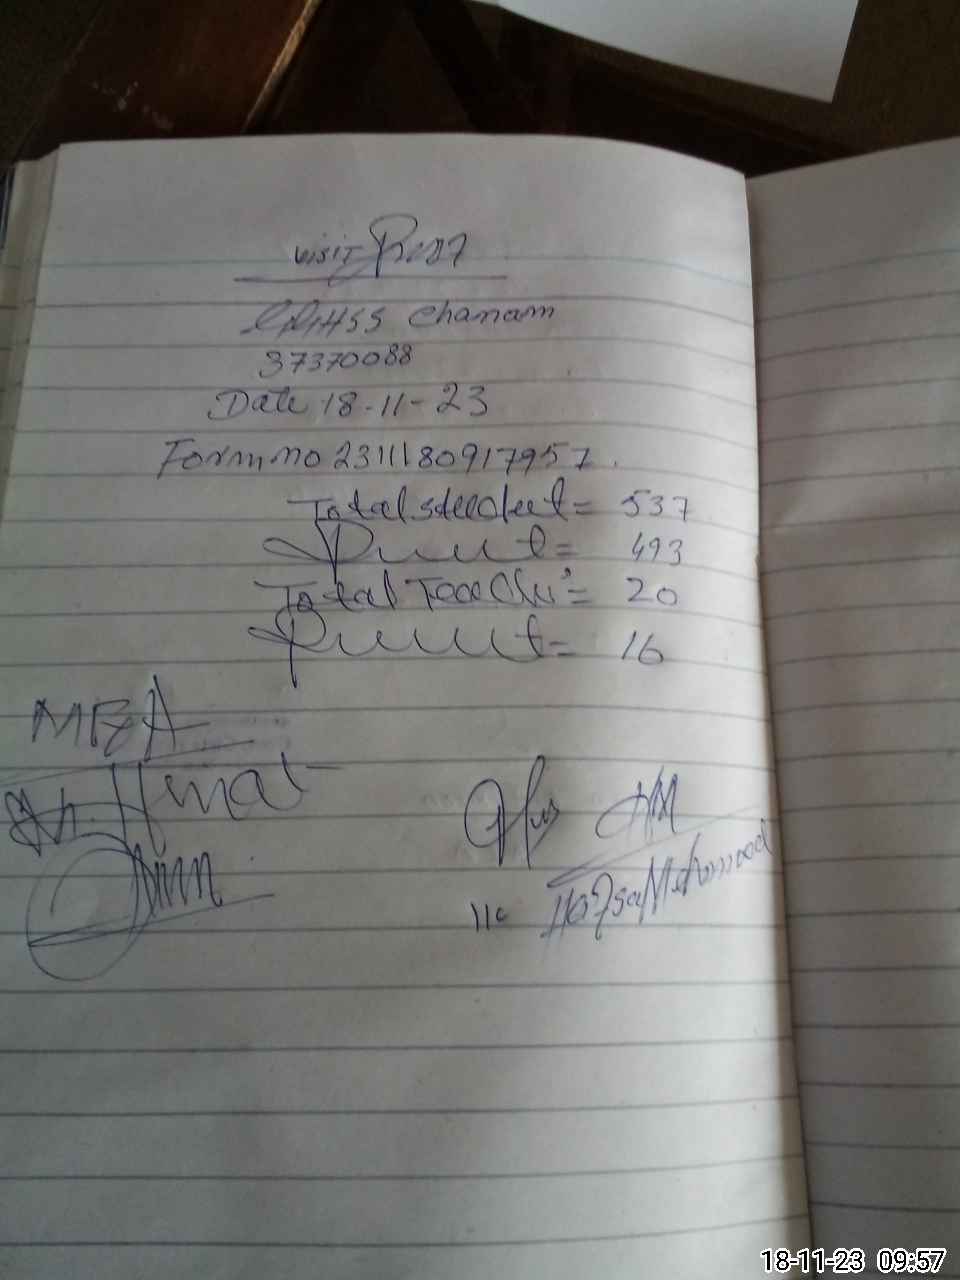 visit Proof
GGHSS Chanam
37370088
Date 18-11-23
Form no 2311180917957.
Total student = 537
Present = 493
Total Teacher = 20
Present = 16
MEA
I/c Hafsa Mehmood
18-11-23 09:57